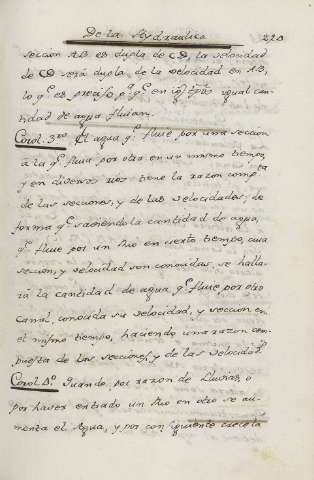 De la Hydraulica 223
seccion AB es dupla de CD, la velocidad
de CD será dupla, de la velocidad en AB,
lo q.e es preciso, p.a q.e en igual can-
tidad de agua fluian.
Corol. 3.ro El agua q.e fluie por una seccion
á la q.e fluia por otro en un mismo tiempo,
y en diversos rios tiene la razon comp.ta
de las secciones, y de las velocidades; de
forma q.e sabiendo la cantidad de agua,
q.e fluie por un rio en cierto tiempo, cuia
seccion, y velocidad son conocidas se halla-
rá la cantidad de agua q.e fluie por otro
canal, conocida su velocidad, y seccion en
el mismo tiempo, haciendo una razon com-
puesta de las secciones, y de las velocidad.s
Corol. 4.o Quando, por razon de Lluvias, o
por haver entrado un Rio en otro se au-
menta el Agua, y por consiguiente crece la